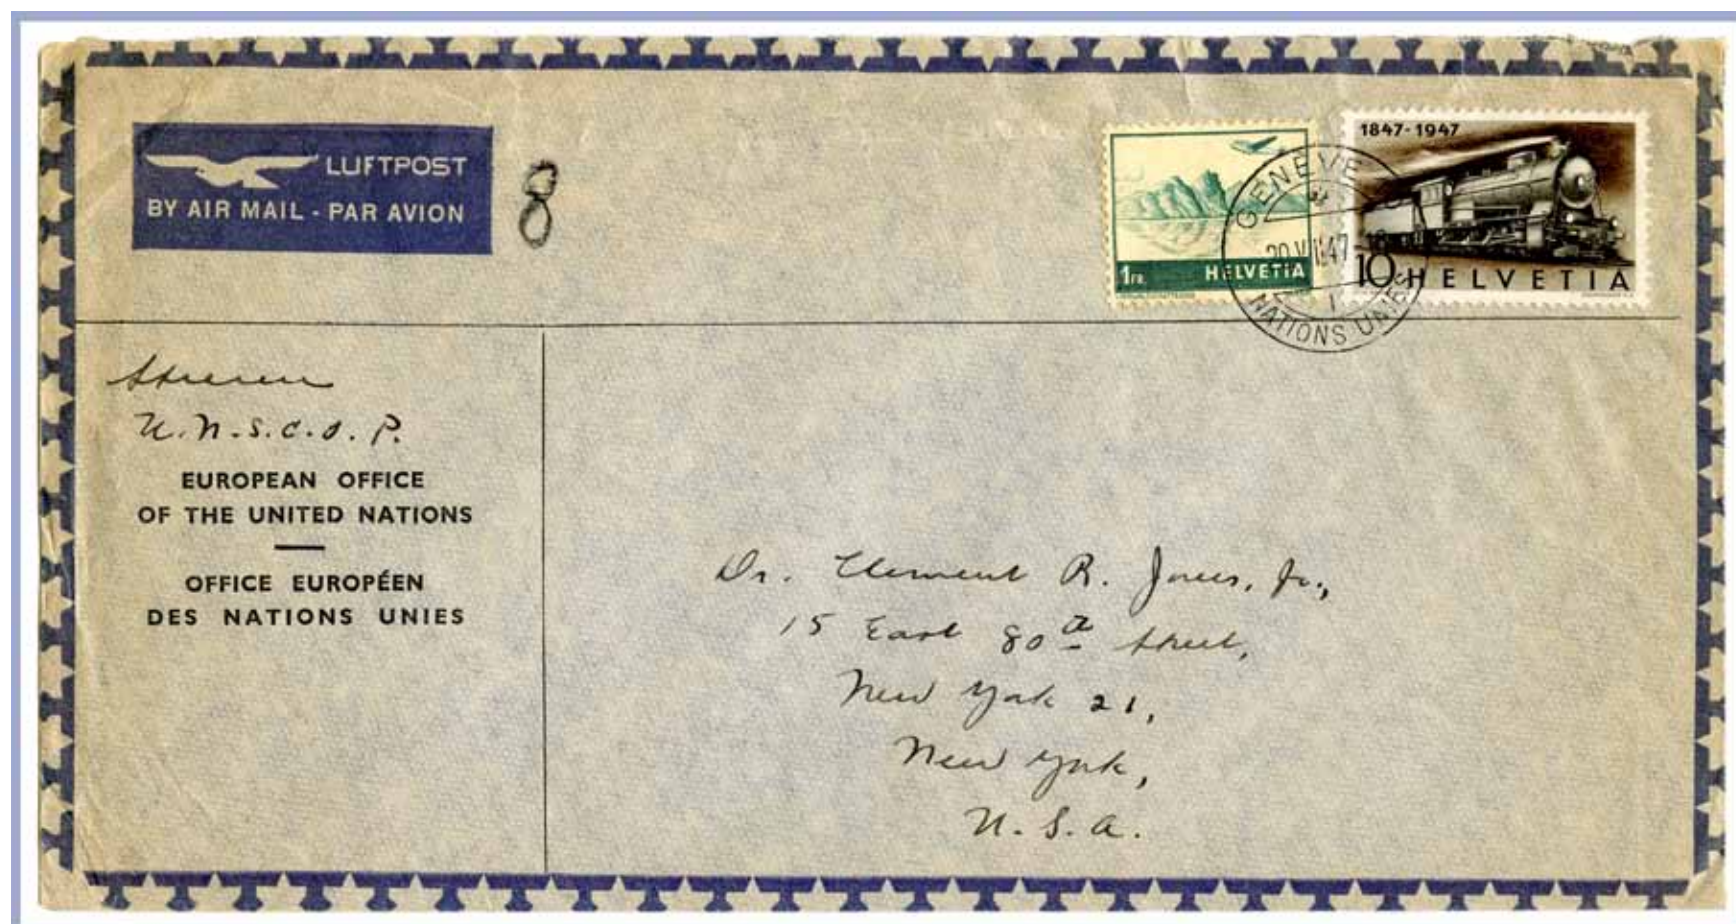 LUFTPOST
BY AIR MAIL - PAR AVION
8
1847-1947
1 FR.
HELVETIA
10 HELVETIA
GENÈVE
NATIONS UNIES
U.N.S.C.O.P.
EUROPEAN OFFICE
OF THE UNITED NATIONS
OFFICE EUROPÉEN
DES NATIONS UNIES
Dr. Clement R. Jones, Jr.,
15 East 80th Street,
New York 21,
New York,
U.S.A.